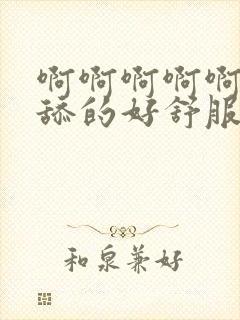 啊啊啊啊啊
舔的好舒服
和泉兼好